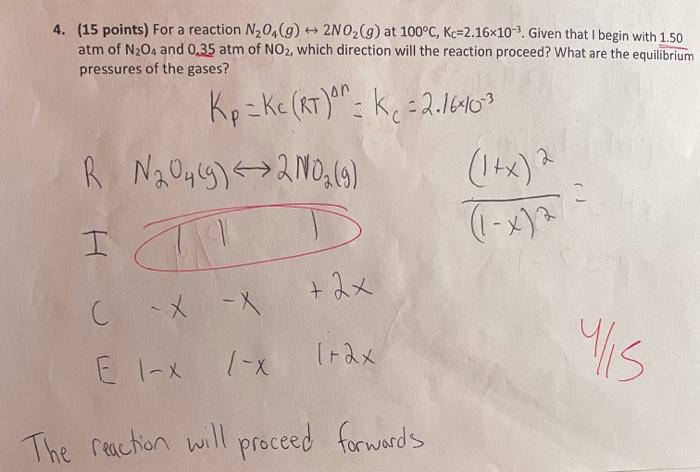 4. (15 points) For a reaction N₂O₄(g) ↔ 2NO₂(g) at 100°C, Kc=2.16×10⁻³. Given that I begin with 1.50
atm of N₂O₄ and 0.35 atm of NO₂, which direction will the reaction proceed? What are the equilibrium
pressures of the gases?
Kp = Kc (RT)^Δn = Kc = 2.16×10⁻³
R N₂O₄(g) ↔ 2NO₂(g)
(1+x)²
(1-x)² =
I 1 1 1
C -x -x +2x
E 1-x 1-x 1+2x
4/15
The reaction will proceed forwards